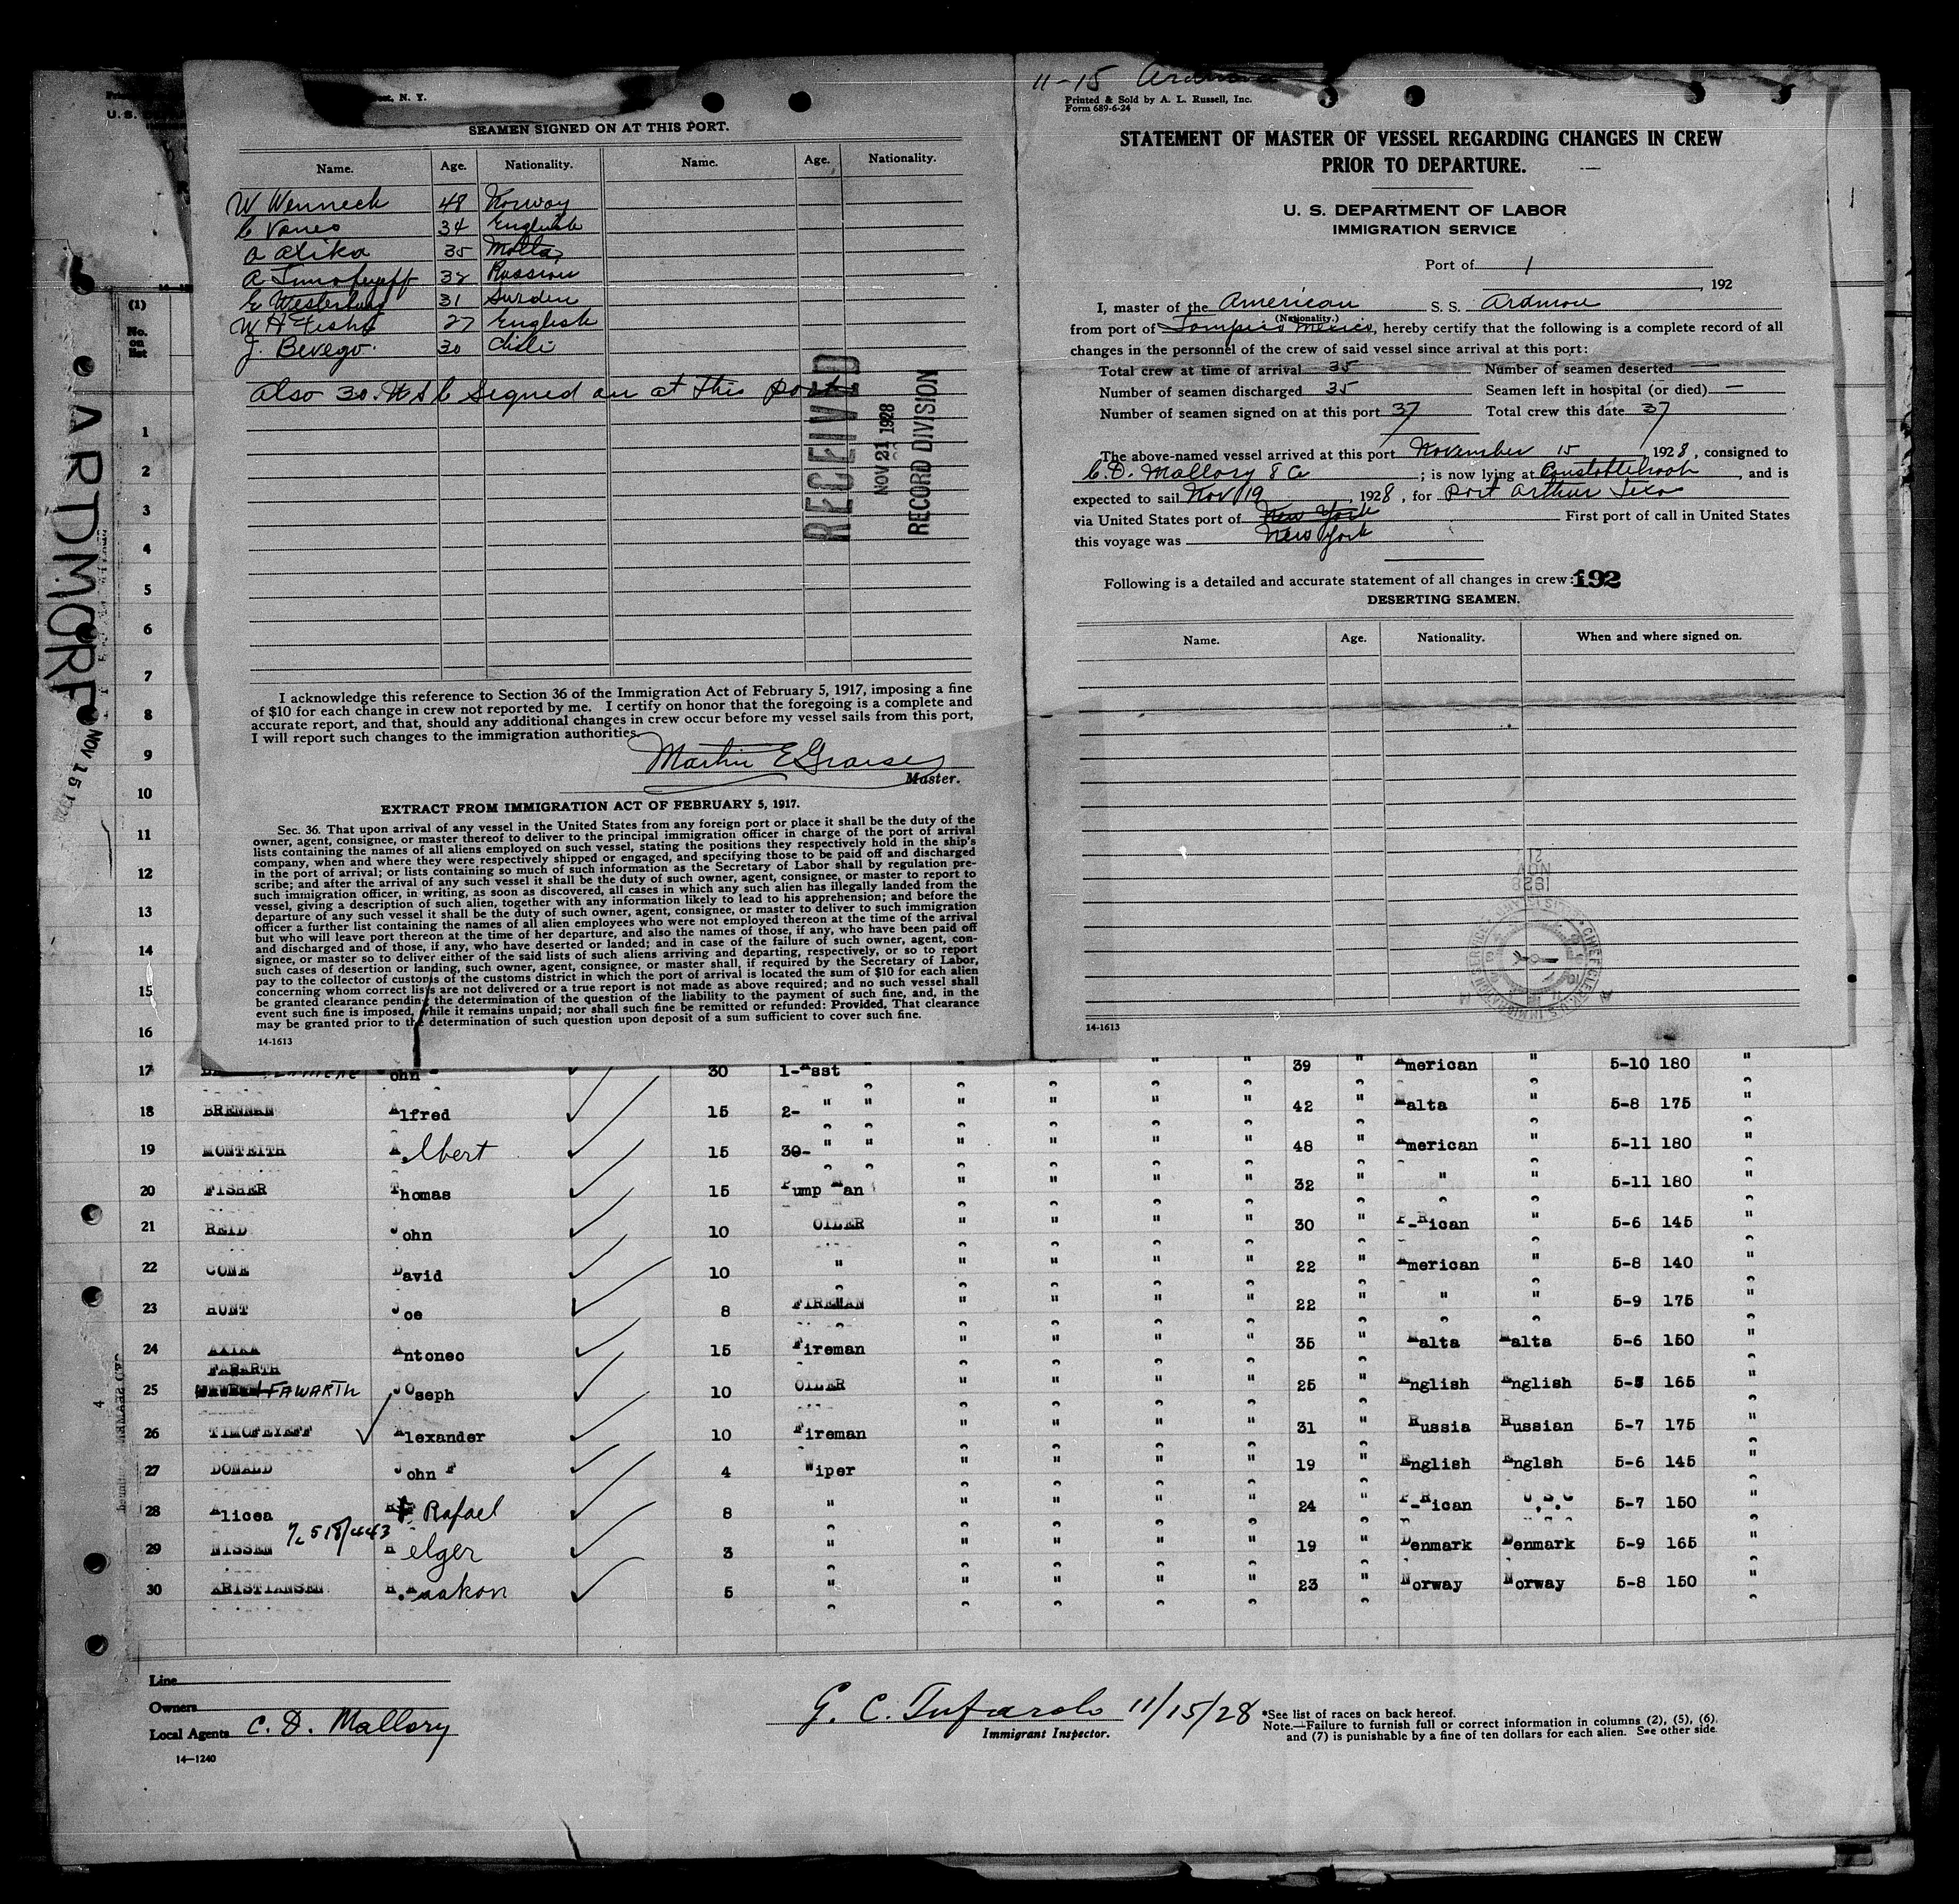 st, N. Y.
SEAMEN SIGNED ON AT THIS PORT.
Name. Age. Nationality. Name. Age. Nationality.
W Wenneck 48 Norway
C Vanes 34 English
a alika 35 Malta
A Timofeyeff 32 Russian
E Westerburg 31 Sweden
W H Fisher 27 English
J. Bevego. 30 Chili
also 30 U S C signed on at this port
RECEIVED
NOV 21 1928
RECORD DIVISION
I acknowledge this reference to Section 36 of the Immigration Act of February 5, 1917, imposing a fine
of $10 for each change in crew not reported by me. I certify on honor that the foregoing is a complete and
accurate report, and that, should any additional changes in crew occur before my vessel sails from this port,
I will report such changes to the immigration authorities.
Martin E
Master.
EXTRACT FROM IMMIGRATION ACT OF FEBRUARY 5, 1917.
Sec. 36. That upon arrival of any vessel in the United States from any foreign port or place it shall be the duty of the
owner, agent, consignee, or master thereof to deliver to the principal immigration officer in charge of the port of arrival
lists containing the names of all aliens employed on such vessel, stating the positions they respectively hold in the ship's
company, when and where they were respectively shipped or engaged, and specifying those to be paid off and discharged
in the port of arrival; or lists containing so much of such information as the Secretary of Labor shall by regulation pre-
scribe; and after the arrival of any such vessel it shall be the duty of such owner, agent, consignee, or master to report to
such immigration officer, in writing, as soon as discovered, all cases in which any such alien has illegally landed from the
vessel, giving a description of such alien, together with any information likely to lead to his apprehension; and before the
departure of any such vessel it shall be the duty of such owner, agent, consignee, or master to deliver to such immigration
officer a further list containing the names of all alien employees who were not employed thereon at the time of the arrival
but who will leave port thereon at the time of her departure, and also the names of those, if any, who have been paid off
and discharged and of those, if any, who have deserted or landed; and in case of the failure of such owner, agent, con-
signee, or master so to deliver either of the said lists of such aliens arriving and departing, respectively, or so to report
such cases of desertion or landing, such owner, agent, consignee, or master shall, if required by the Secretary of Labor,
pay to the collector of customs of the customs district in which the port of arrival is located the sum of $10 for each alien
concerning whom correct lists are not delivered or a true report is not made as above required; and no such vessel shall
be granted clearance pending the determination of the question of the liability to the payment of such fine, and, in the
event such fine is imposed, while it remains unpaid; nor shall such fine be remitted or refunded: Provided, That clearance
may be granted prior to the determination of such question upon deposit of a sum sufficient to cover such fine.
14-1613
11-15 Ardmore
Printed & Sold by A. L. Russell, Inc.
Form 689-6-24
STATEMENT OF MASTER OF VESSEL REGARDING CHANGES IN CREW
PRIOR TO DEPARTURE.
U. S. DEPARTMENT OF LABOR
IMMIGRATION SERVICE
Port of 1
, 192
I, master of the American S. S. Ardmore
(Nationality.)
from port of Tampico Mexico, hereby certify that the following is a complete record of all
changes in the personnel of the crew of said vessel since arrival at this port:
Total crew at time of arrival 35 Number of seamen deserted —
Number of seamen discharged 35 Seamen left in hospital (or died) —
Number of seamen signed on at this port 37 Total crew this date 37
The above-named vessel arrived at this port November 15 1928, consigned to
C. D. Mallory & Co ; is now lying at Constablehook, and is
expected to sail Nov 19, 1928, for Port Arthur Texas
via United States port of New York First port of call in United States
this voyage was New York
Following is a detailed and accurate statement of all changes in crew: 192
DESERTING SEAMEN.
Name. Age. Nationality. When and where signed on.
21
NOV
1928
14-1613
ARDMORE
NOV 15
U. S.
(1)
No. on list
1
2
3
4
5
6
7
8
9
10
11
12
13
14
15
16
17 ohn 30 1-Asst " " " " 39 " American " 5-10 180 "
18 BRENNAN Alfred 15 2- " " " " " " 42 " Malta " 5-8 175 "
19 MONTEITH Albert 15 30- " " " " " " 48 " American " 5-11 180 "
20 FISHER Thomas 15 Pump Man " " " " 32 " " " 5-11 180 "
21 REID John 10 OILER " " " " 30 " P-Rican " 5-6 145 "
22 CONE David 10 " " " " " 22 " American " 5-8 140 "
23 HUNT Joe 8 FIREMAN " " " " 22 " " " 5-9 175 "
24 AXIKA Antoneo 15 Fireman " " " " 35 " Malta Malta 5-6 150 "
FAWARTH
25 FAWARTH JOseph 10 OILER " " " " 25 " English English 5-5 165 "
26 TIMOFEYEFF Alexander 10 Fireman " " " " 31 " Russia Russian 5-7 175 "
27 DONALD John F 4 Wiper " " " " 19 " English Englsh 5-6 145 "
28 Alicea Rafael 8 " " " " " 24 " P-Rican U.S.C 5-7 150 "
29 NISSEN Helger 3 " " " " " 19 " Denmark Denmark 5-9 165 "
30 KRISTIANSEN Haakon 5 " " " " " 23 " Norway Norway 5-8 150 "
Line
Owners
Local Agents C. D. Mallory
14-1240
G. C. Tufarolo 11/15/28
Immigrant Inspector.
*See list of races on back hereof.
Note.—Failure to furnish full or correct information in columns (2), (5), (6),
and (7) is punishable by a fine of ten dollars for each alien. See other side.